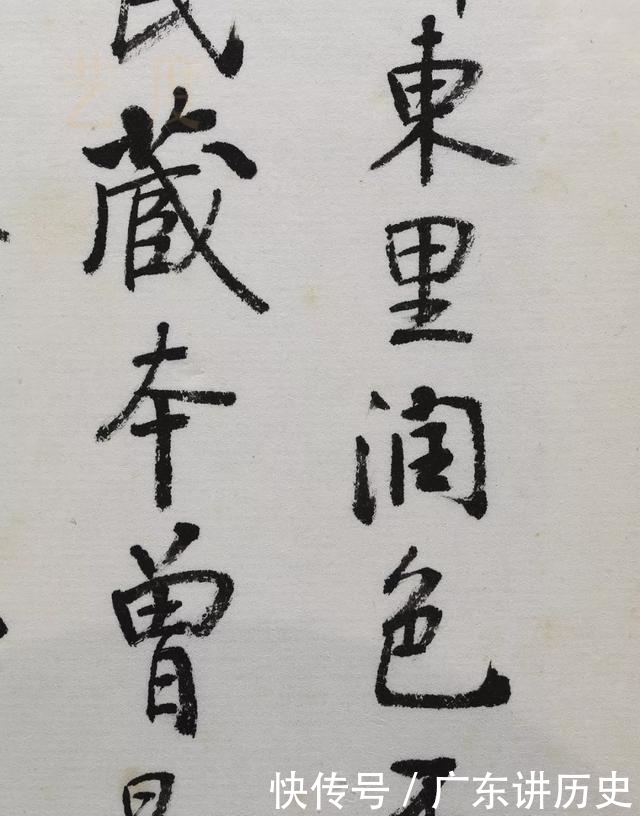 東里润色
氏藏本曾
快传号 / 广东讲历史